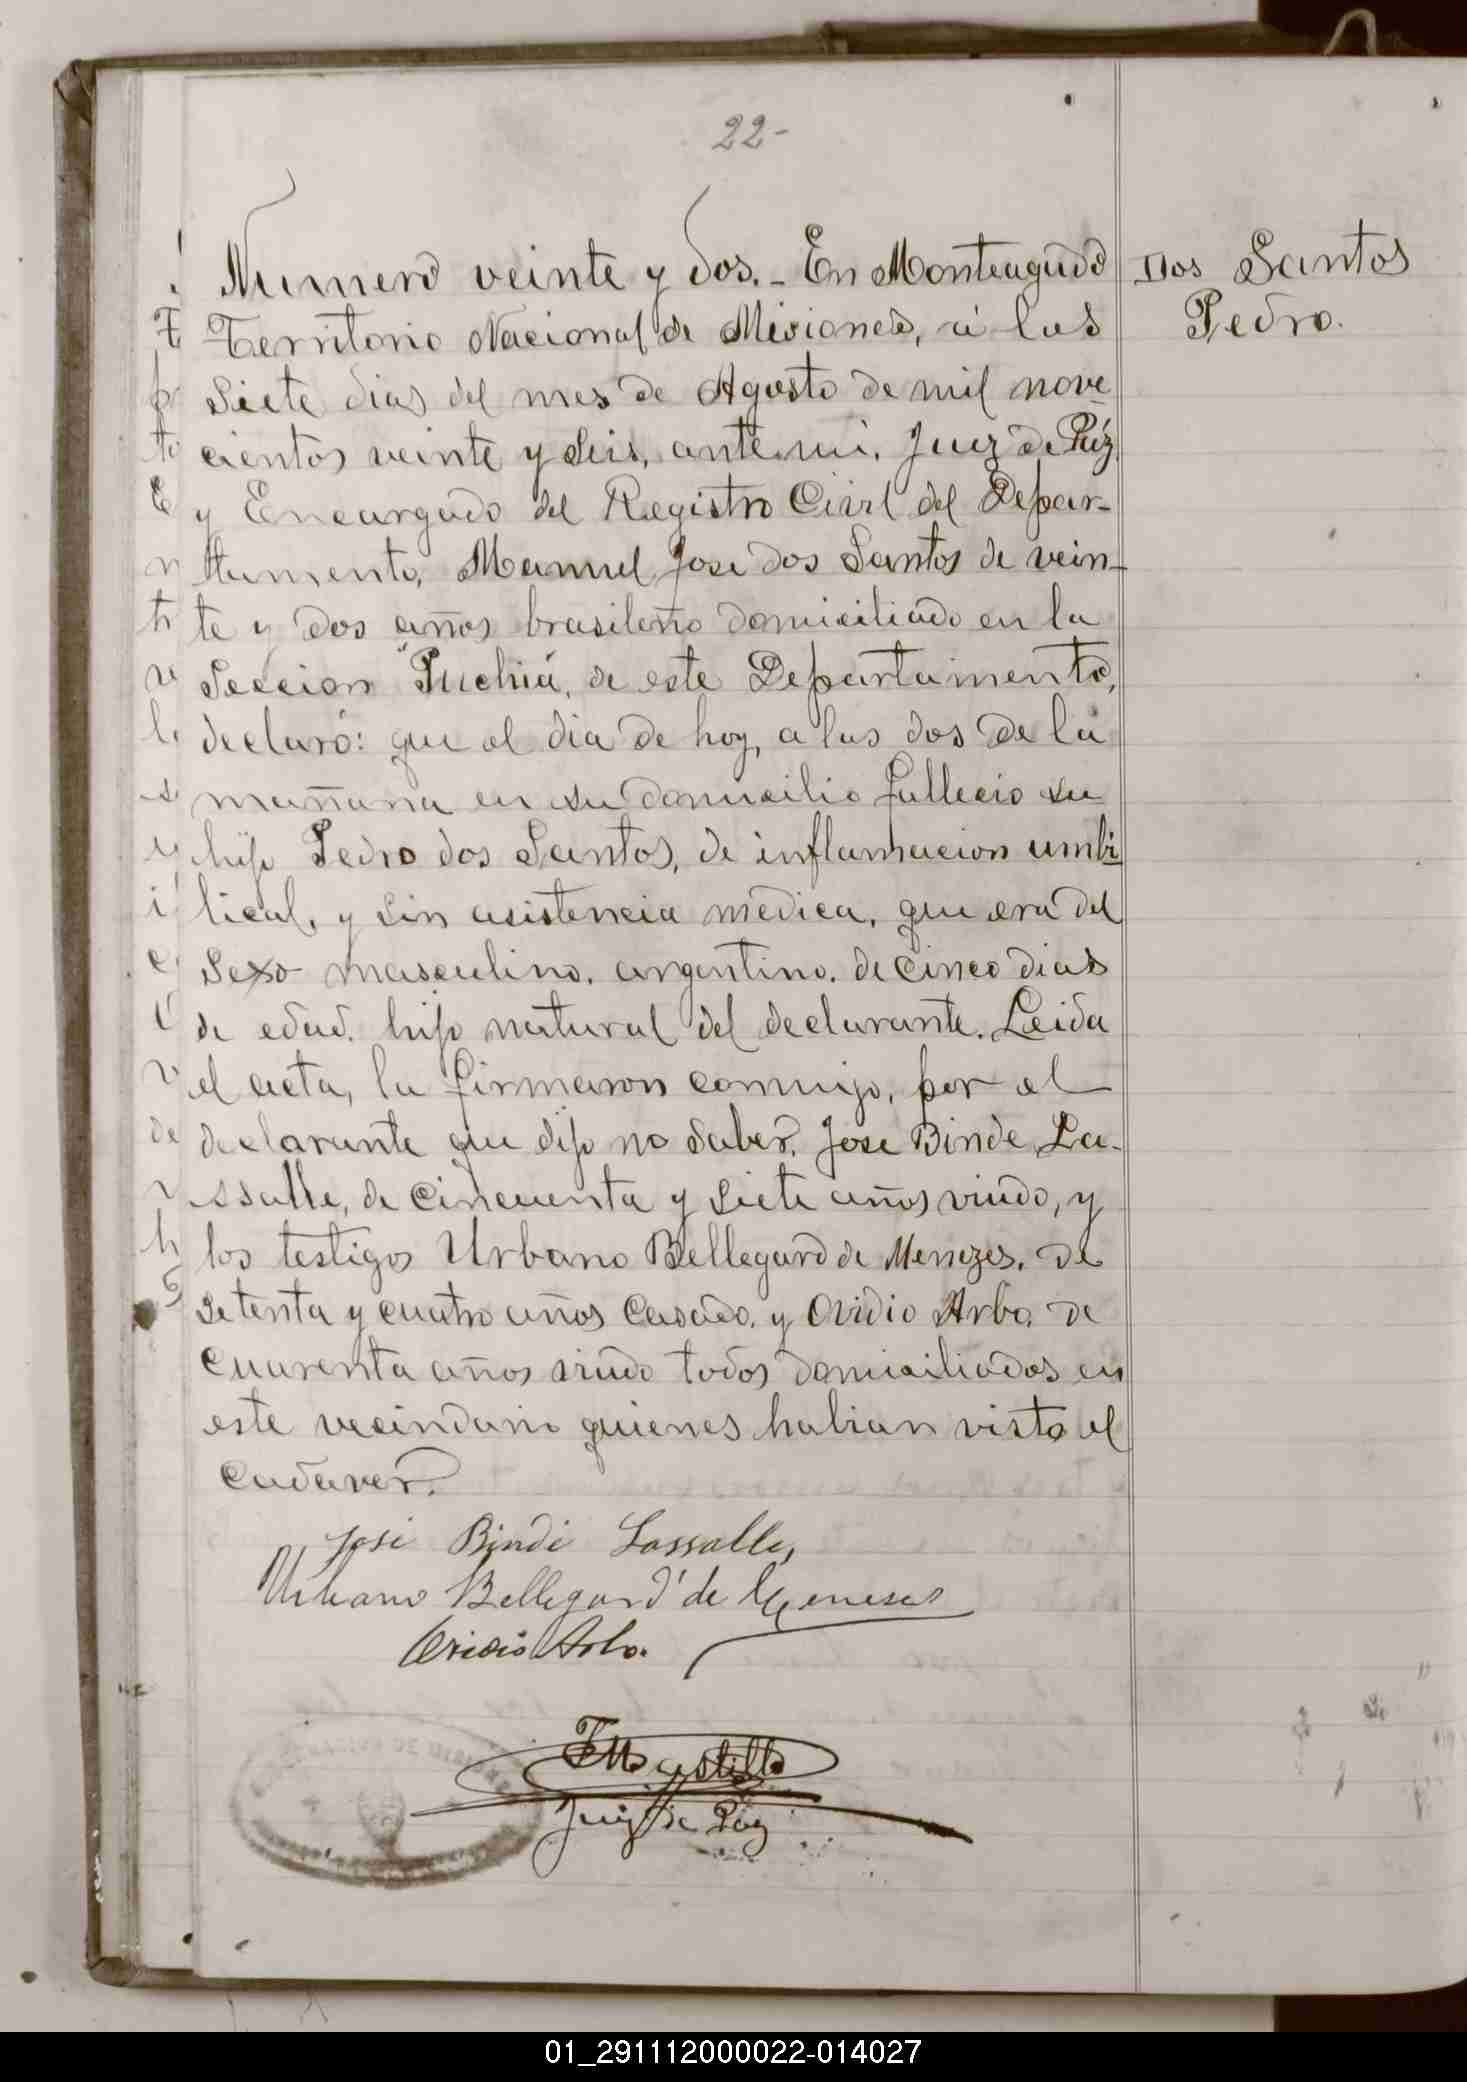 22-
Numero veinte y dos.- En Monteagudo
Dos Santos
Pedro.
Territorio Nacional de Misiones, á las
siete dias del mes de Agosto de mil nove
cientos veinte y seis, ante mi, Juez de Páz
y Encargado del Registro Civil del Depar-
tamento, Manuel Jose dos Santos de vein-
te y dos años brasileño domiciliado en la
Seccion Puchiá, de este Departamento,
declaró: que el dia de hoy, a las dos de la
mañana en su domicilio fallecio su
hijo Pedro dos Santos, de inflamacion umbi
lical, y sin asistencia medica, que era del
sexo masculino, argentino, de cinco dias
de edad, hijo natural del declarante. Leida
el acta, la firmaron conmigo, por el
declarante que dijo no saber, Jose Binde La-
ssalle, de cincuenta y siete años viudo, y
los testigos Urbano Bellegard de Menezes, de
setenta y cuatro años casado, y Ovidio Arbo, de
cuarenta años viudo todos domiciliados en
este vecindario quienes habian visto el
cadaver.
José Binde Lassalle,
Urbano Bellegard' de Meneses
Ovidio Arbo.
Juez de Páz
01_291112000022-014027